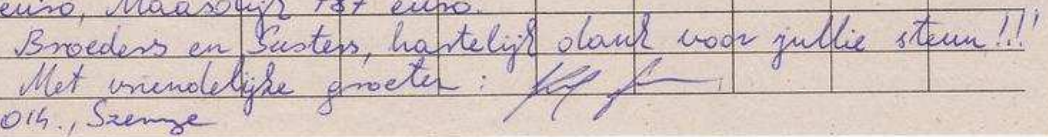 euro, Maasdijk 187 euro.
Broeders en Susters, hartelijk dank voor jullie steun!!!
Met vriendelijke groeten :
014., Szernye